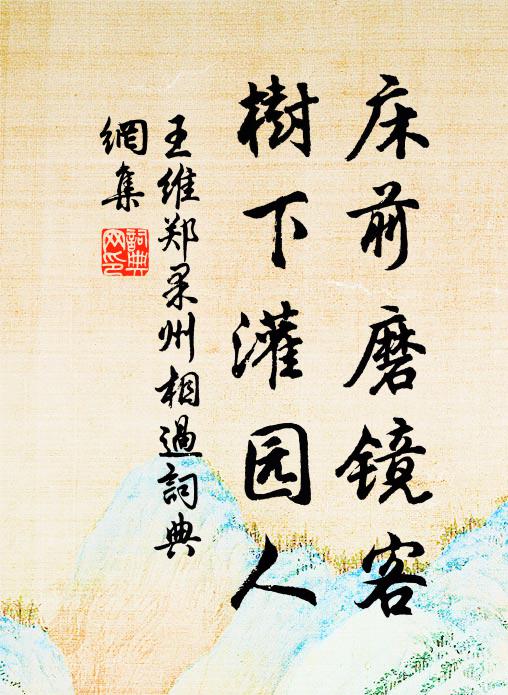 床前磨镜客
樹下灌园人
王維郑果州相過詞典
網集
詞典网印